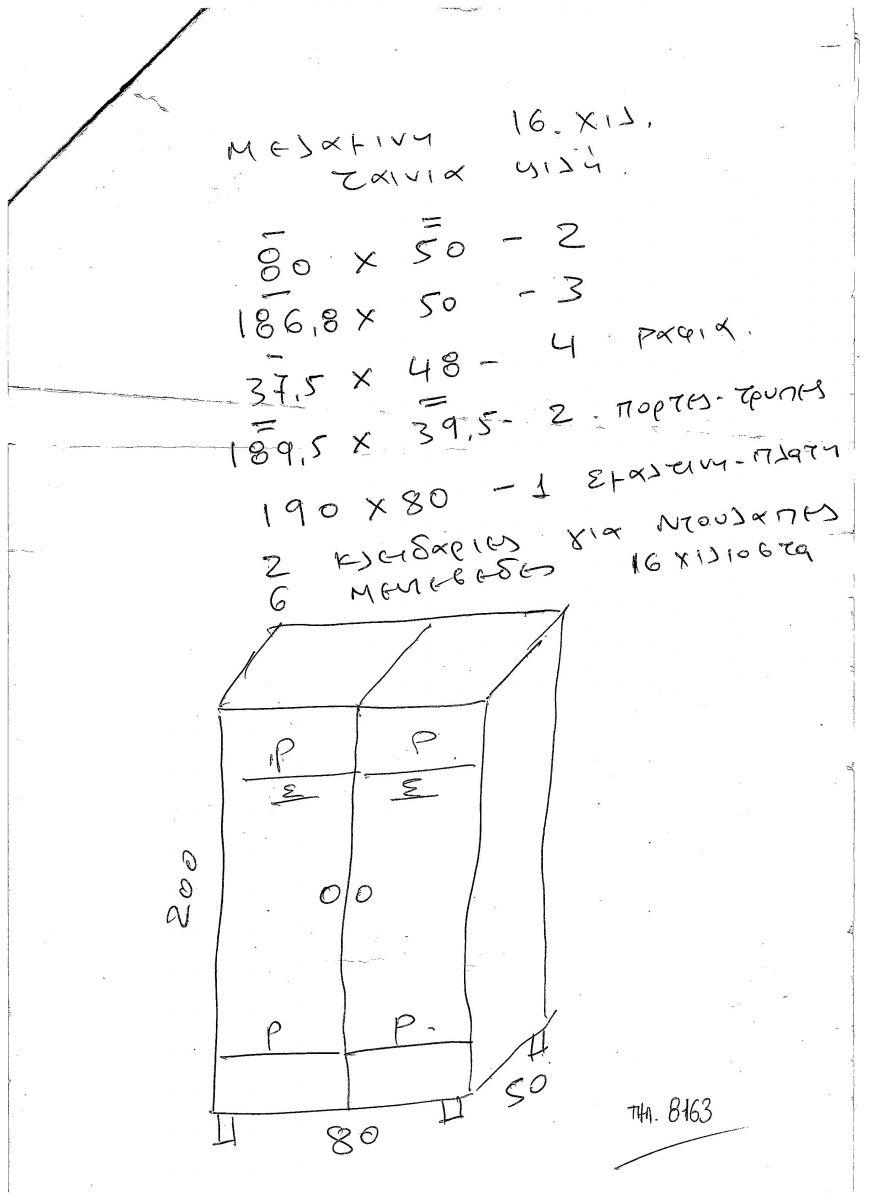 ΜΕλαμινη 16. χιλ.
ταινια ψιλή.
80 x 50 - 2
186,8 x 50 - 3
37,5 x 48 - 4 ραφια.
189,5 x 39,5 - 2. πορτες - τρυπες
190 x 80 - 1 πλατη
2 κλειδαριες για Ντουλαπες
6 μεντεσεδες 16 χιλιοστα
Ρ Ρ
Σ Σ
200
Ο Ο
Ρ Ρ.
50
80
ΤΗΛ. 8163